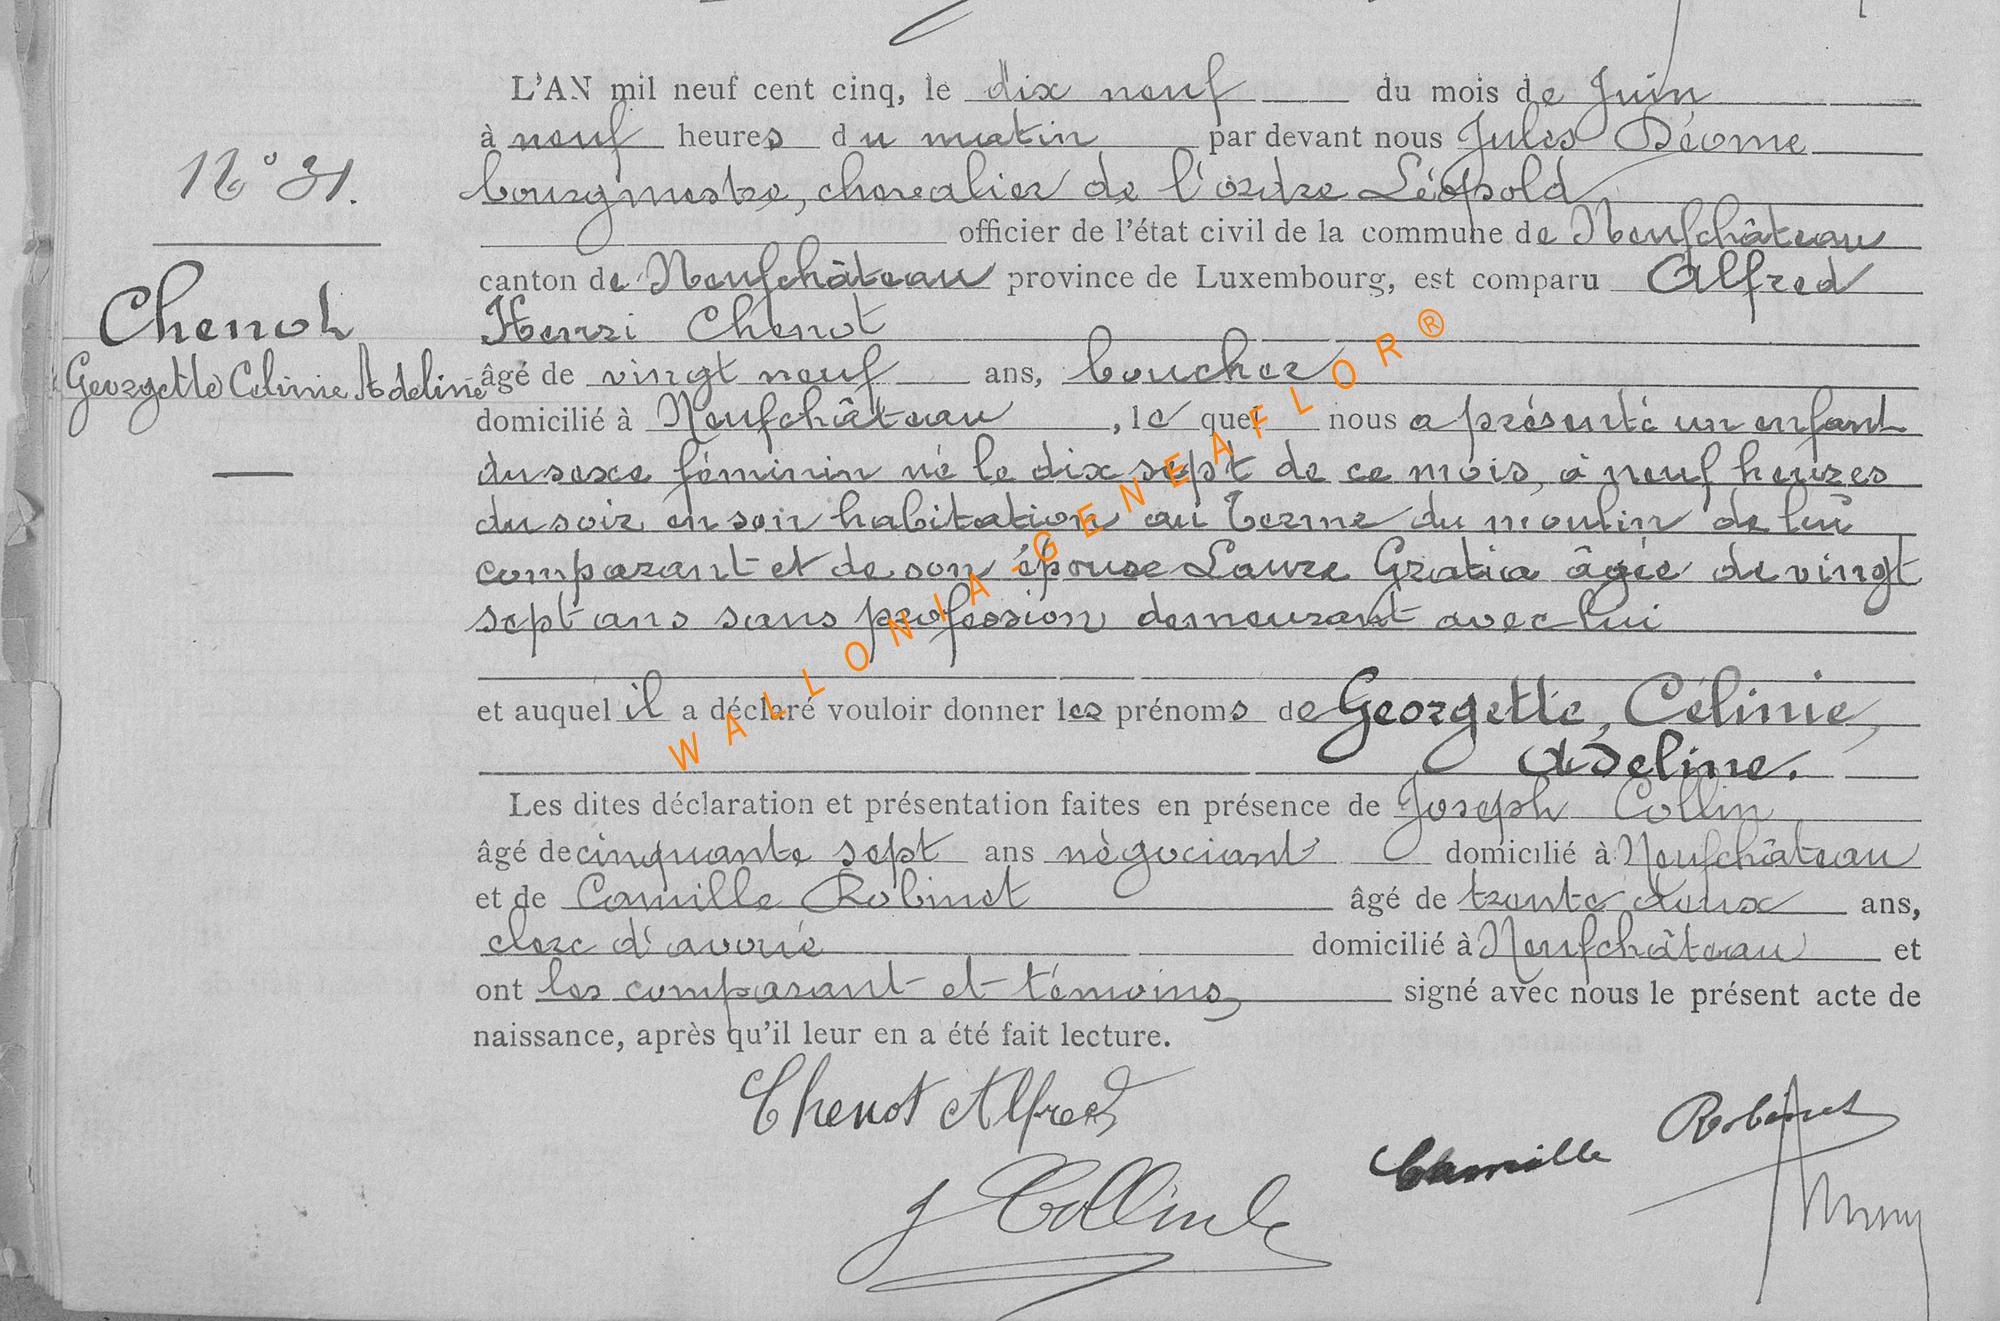 L'AN mil neuf cent cinq, le dix neuf du mois de Juin
à neuf heures du matin par devant nous Jules Déome
N° 31.
bourgmestre, chevalier de l'ordre Léopold
officier de l'état civil de la commune de Neufchâteau
canton de Neufchâteau province de Luxembourg, est comparu Alfred
Chenot
Henri Chenot
Georgette Celinie Adeline
âgé de vingt neuf ans, boucher
domicilié à Neufchâteau, le quel nous a présenté un enfant
du sexe féminin né le dix sept de ce mois, à neuf heures
du soir en son habitation au Terme du moulin de lui
comparant et de son épouse Laure Gratia âgée de vingt
sept ans sans profession demeurant avec lui
et auquel il a déclaré vouloir donner les prénoms de Georgette, Célinie,
Adeline.
Les dites déclaration et présentation faites en présence de Joseph Collin
âgé de cinquante sept ans négociant domicilié à Neufchâteau
et de Camille Robinet âgé de trente deux ans,
clerc d'avoué domicilié à Neufchâteau et
ont les comparant et témoins, signé avec nous le présent acte de
naissance, après qu'il leur en a été fait lecture.
Chenot Alfred
Camille Robinet
J Collin
WALLONIA-GENEAFLOR®